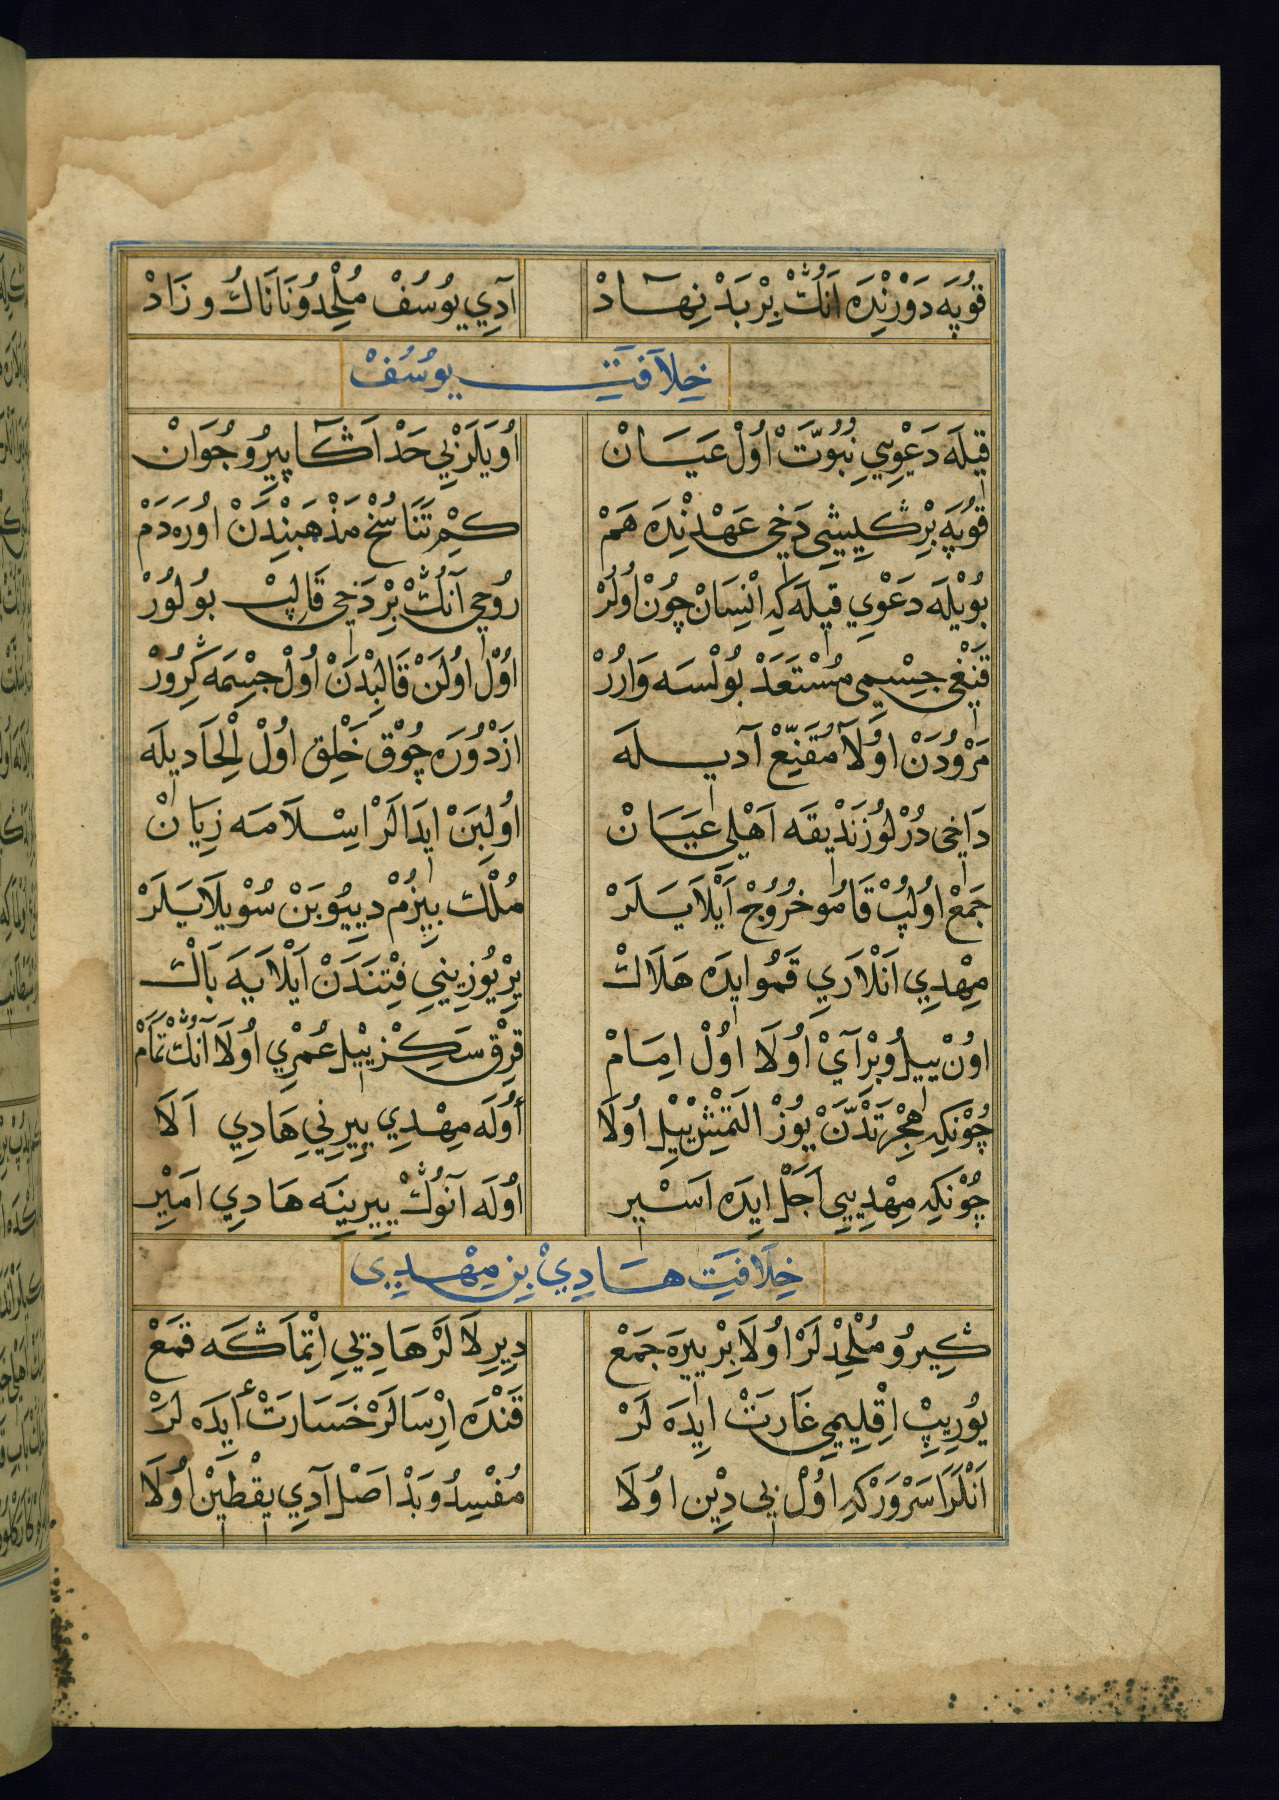 قوُپَه دَوْرِنْدَه اَنُڭْ بِرْ بَدْ نِهَادْ آدِي يوُسُفْ مُلْحِدُ و نَانَاكُ و زَادْ
خِلَافَتِ يوُسُفْ
قيلَه دَعْوِيِ نُبُوَّتْ اُولْ عَيَانْ اُويَلَرْ بِي حَدْ اَڭَا پيرُ و جُوَانْ
قوُپَه بِرْ كيشِي دَخِي عَهْدِنْدَه هَمْ كِمْ تَنَاسُخْ مَذْهَبِنْدَنْ اوُرَه دَمْ
بُويْلَه دَعْوِي قيلَه كِه اِنْسَانْ چُونْ اُولُرْ رُوحِي آنُڭْ بِرْ دَخِي قَالِبْ بُولُورْ
قَنْغِي جِسْمِي مُسْتَعَدْ بُولْسَه وَارُرْ اوُلْ اوُلَنْ قَالِبْدَنْ اُولْ جِسْمَه كَرُورْ
مَرْودَنْ اوُلَا مُقَنِّعْ آديلَه اَزْدُورَه چُوْقْ خَلْقِ اُولْ اِلْحَاديلَه
دَاخِي دُرْلُو زَنْديقَه اَهْلِي عَيَانْ اُولِبَنْ ايدَالَرْ اِسْلَامَه زِيَانْ
جَمْعْ اُولُپْ قَامُو خُرُوجْ اَيْلَايَلَرْ مُلْكْ بيزُمْ دييُوبَنْ سُوْيلَايَلَرْ
مِهْدِي اَنْلَارِي قَمُو ايدَه هَلَاكْ يِرْ يُوزِينِي فِتْنَدَنْ اَيْلَايَه بَاكْ
اوُنْ ييلُ و بْرْ آيْ اُولَا اوُلْ اِمَامْ قِرْقْ سَكِزْ ييلْ عُمْرِي اُولَا آنُڭْ تَمَامْ
چُوْنكِه هِجْرَتْدَنْ يُوزْ اَلْتْمِشْ ييلْ اُولَا اُولَه مِهْدِي يِيرِنِي هَادِي اَلَا
چُوْنكِه مِهْدِييِي اَجَلْ ايدَه اَسيرْ اُولَه آنُوڭْ ييرِينَه هَادِي اَميرْ
خِلَافَتِ هَادِيْ بِنْ مِهْدِيى
كيرُو مُلْحِدْلَرْ اُولَا بِرْ ييرَه جَمْعْ ديرِلَالَرْ هَادِيِي اِتْمَاڭَه قَمْعْ
يُورِيپْ اِقْليمِي غَارَتْ ايدَه لَرْ قَنْدَه اِرْسَالَرْ خَسَارَتْ ايدَه لَرْ
اَنْلَرَا سَرْوَرْ كِه اوُلْ بِى دينْ اوُلَا مُفْسِدُ و بَدْ اَصْلْ آدِي يَقْطينْ اُولَا